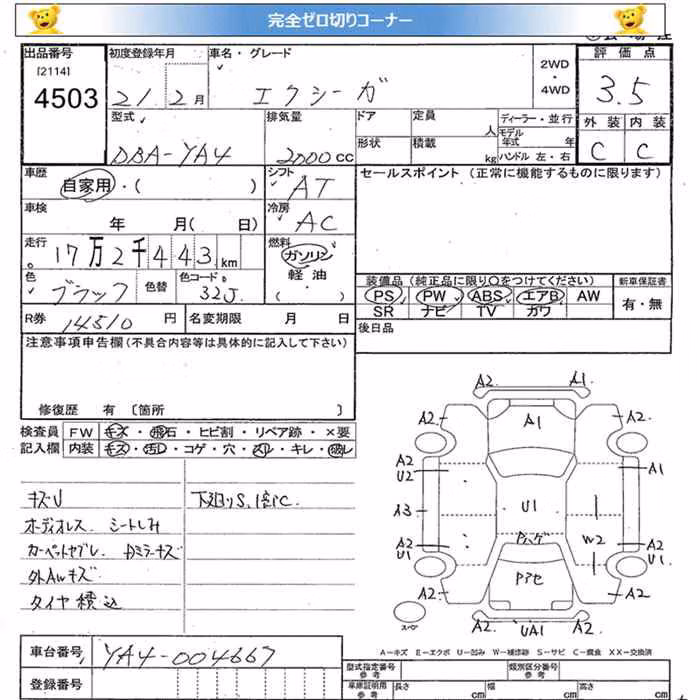 完全ゼロ切りコーナー
出品番号
[2114]
4503
初度登録年月
21 2月
車名・グレード
エクシーガ
2WD
・
4WD
評価点
3.5
型式
DBA-YA4
排気量
2000 cc
ドア
定員
人
ディーラー・並行
モデル年式 年
形状
積載
kg
ハンドル 左・右
外装
内装
C
C
車歴
自家用・( )
シフト
AT
セールスポイント (正常に機能するものに限ります)
車検
年 月( 日)
冷房
AC
走行
17万2千443km
燃料
ガソリン
軽油
( )
色
ブラック
色替
色コード
32J
装備品 (純正品に限り〇をつけてください)
新車保証書
PS PW ABS エアB AW
SR ナビ TV カワ
有・無
R券
14510 円
名変期限 月 日
後日品
注意事項申告欄 (不具合内容等は具体的に記入して下さい)
修復歴 有 〔箇所 〕
検査員
記入欄
FW キズ・飛石・ヒビ割・リペア跡・×要
内装 キズ・汚レ・コゲ・穴・スレ・キレ・破レ
キズU
下廻りS、
オーディオレス シートしみ
カーペットヤブレ Dミラーキズ
外AWキズ
タイヤ積込
A2 A1
A2 A1 A2
A2
U2
A1
A3 U1
A2
U1
W2
A2
U1
A2 A2
A2 UA1 A2
スペア
A-キズ E-エクボ U-凹み W-補修跡 S-サビ C-腐食 XX-交換済
車台番号
YA4-004667
登録番号
型式指定番号
参考
類別区分番号
参考
車庫証明用
参考
長さ cm
幅 cm
高さ cm